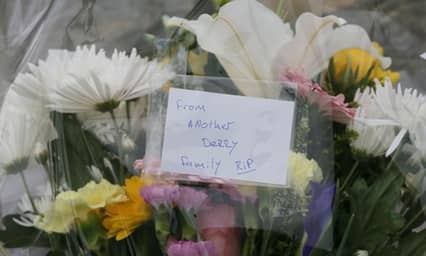 From
Another
Derry
family RIP